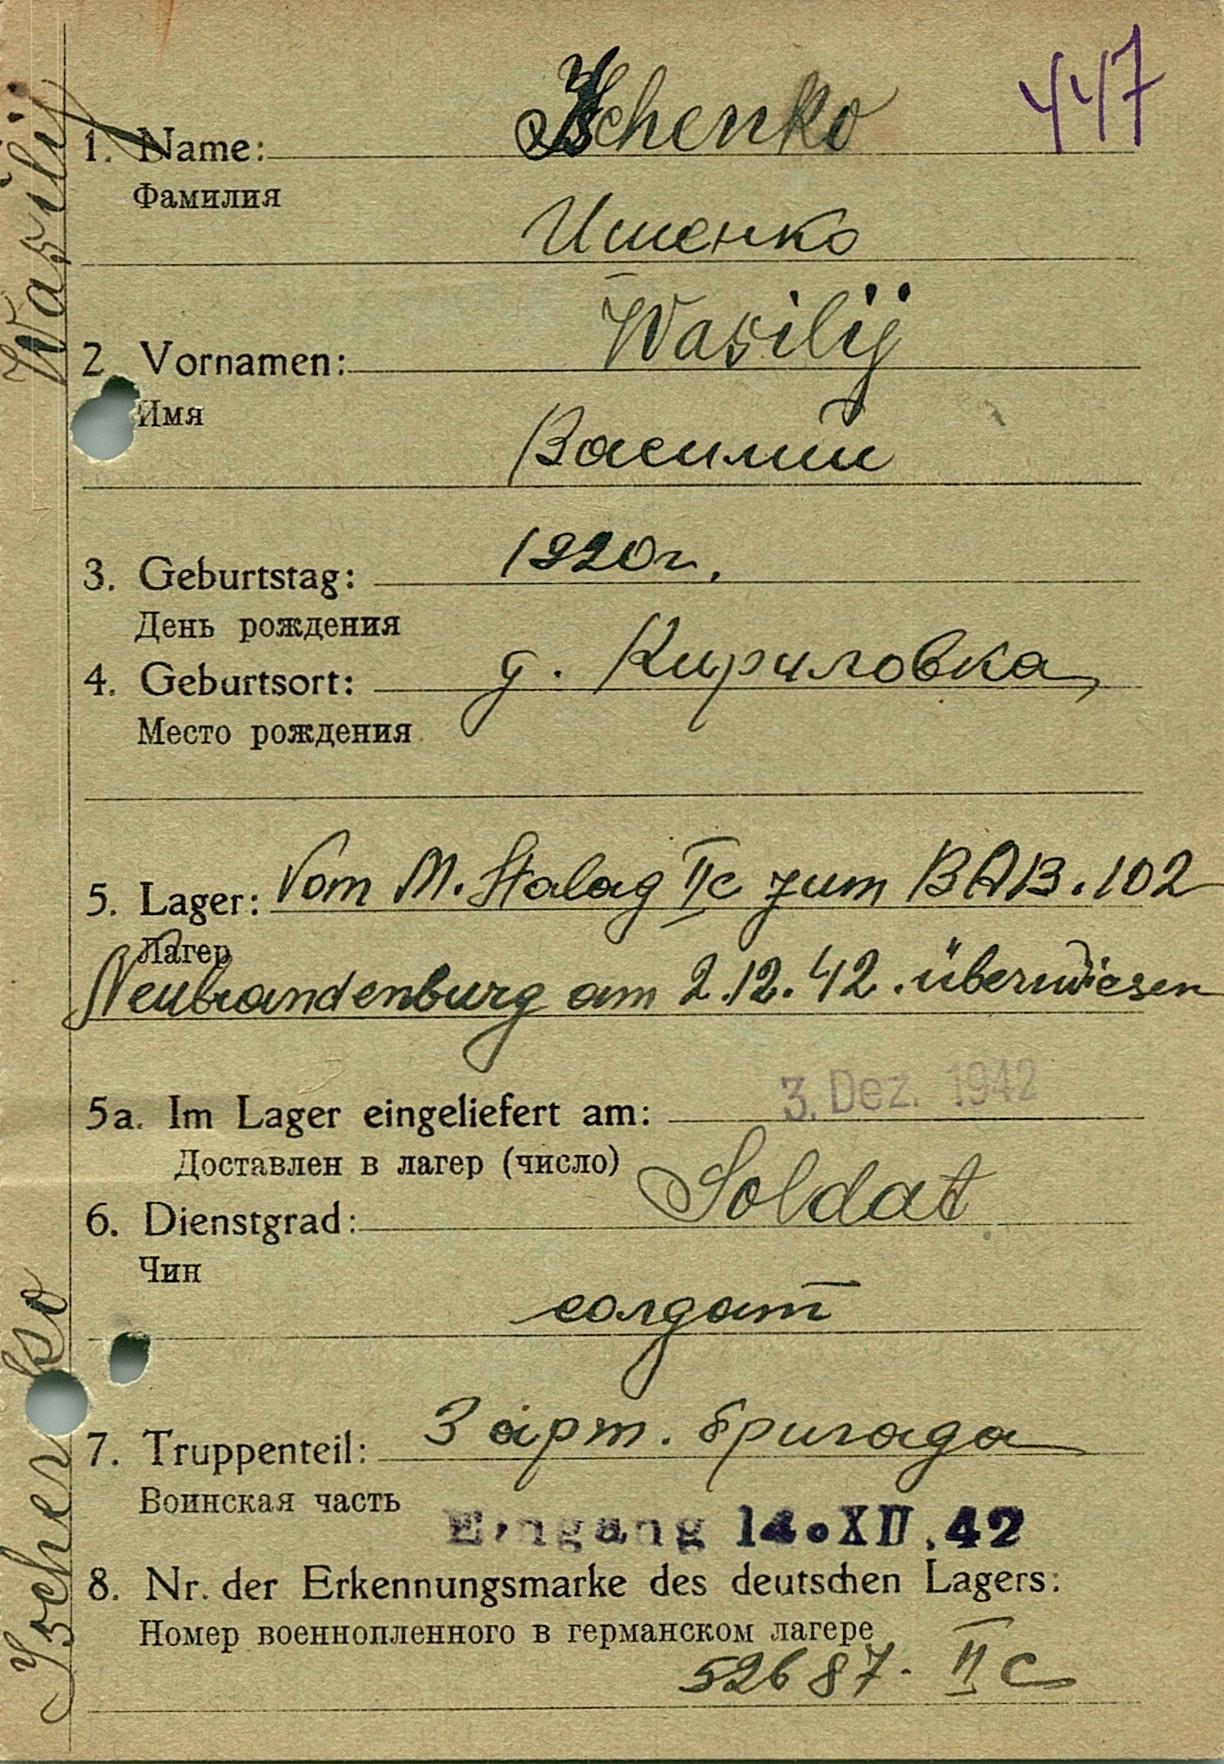 447
1. Name: Ischenko
Фамилия
Ишенко
2. Vornamen: Wasilij
Имя
Василии
3. Geburtstag: 1920 г.
День рождения
4. Geburtsort: д. Кириловка
Место рождения
5. Lager: Vom M. Stalag IIc zum BAB. 102
Лагер
Neubrandenburg am 2.12.42. überwiesen
5a. Im Lager eingeliefert am: 3. Dez. 1942
Доставлен в лагер (число)
6. Dienstgrad: Soldat
Чин
солдат
7. Truppenteil: 3 арт. бригада
Воинская часть
Eingang 14.XII.42
8. Nr. der Erkennungsmarke des deutschen Lagers:
Номер военнопленного в германском лагере
52687. II C
Ischenko Wasilij